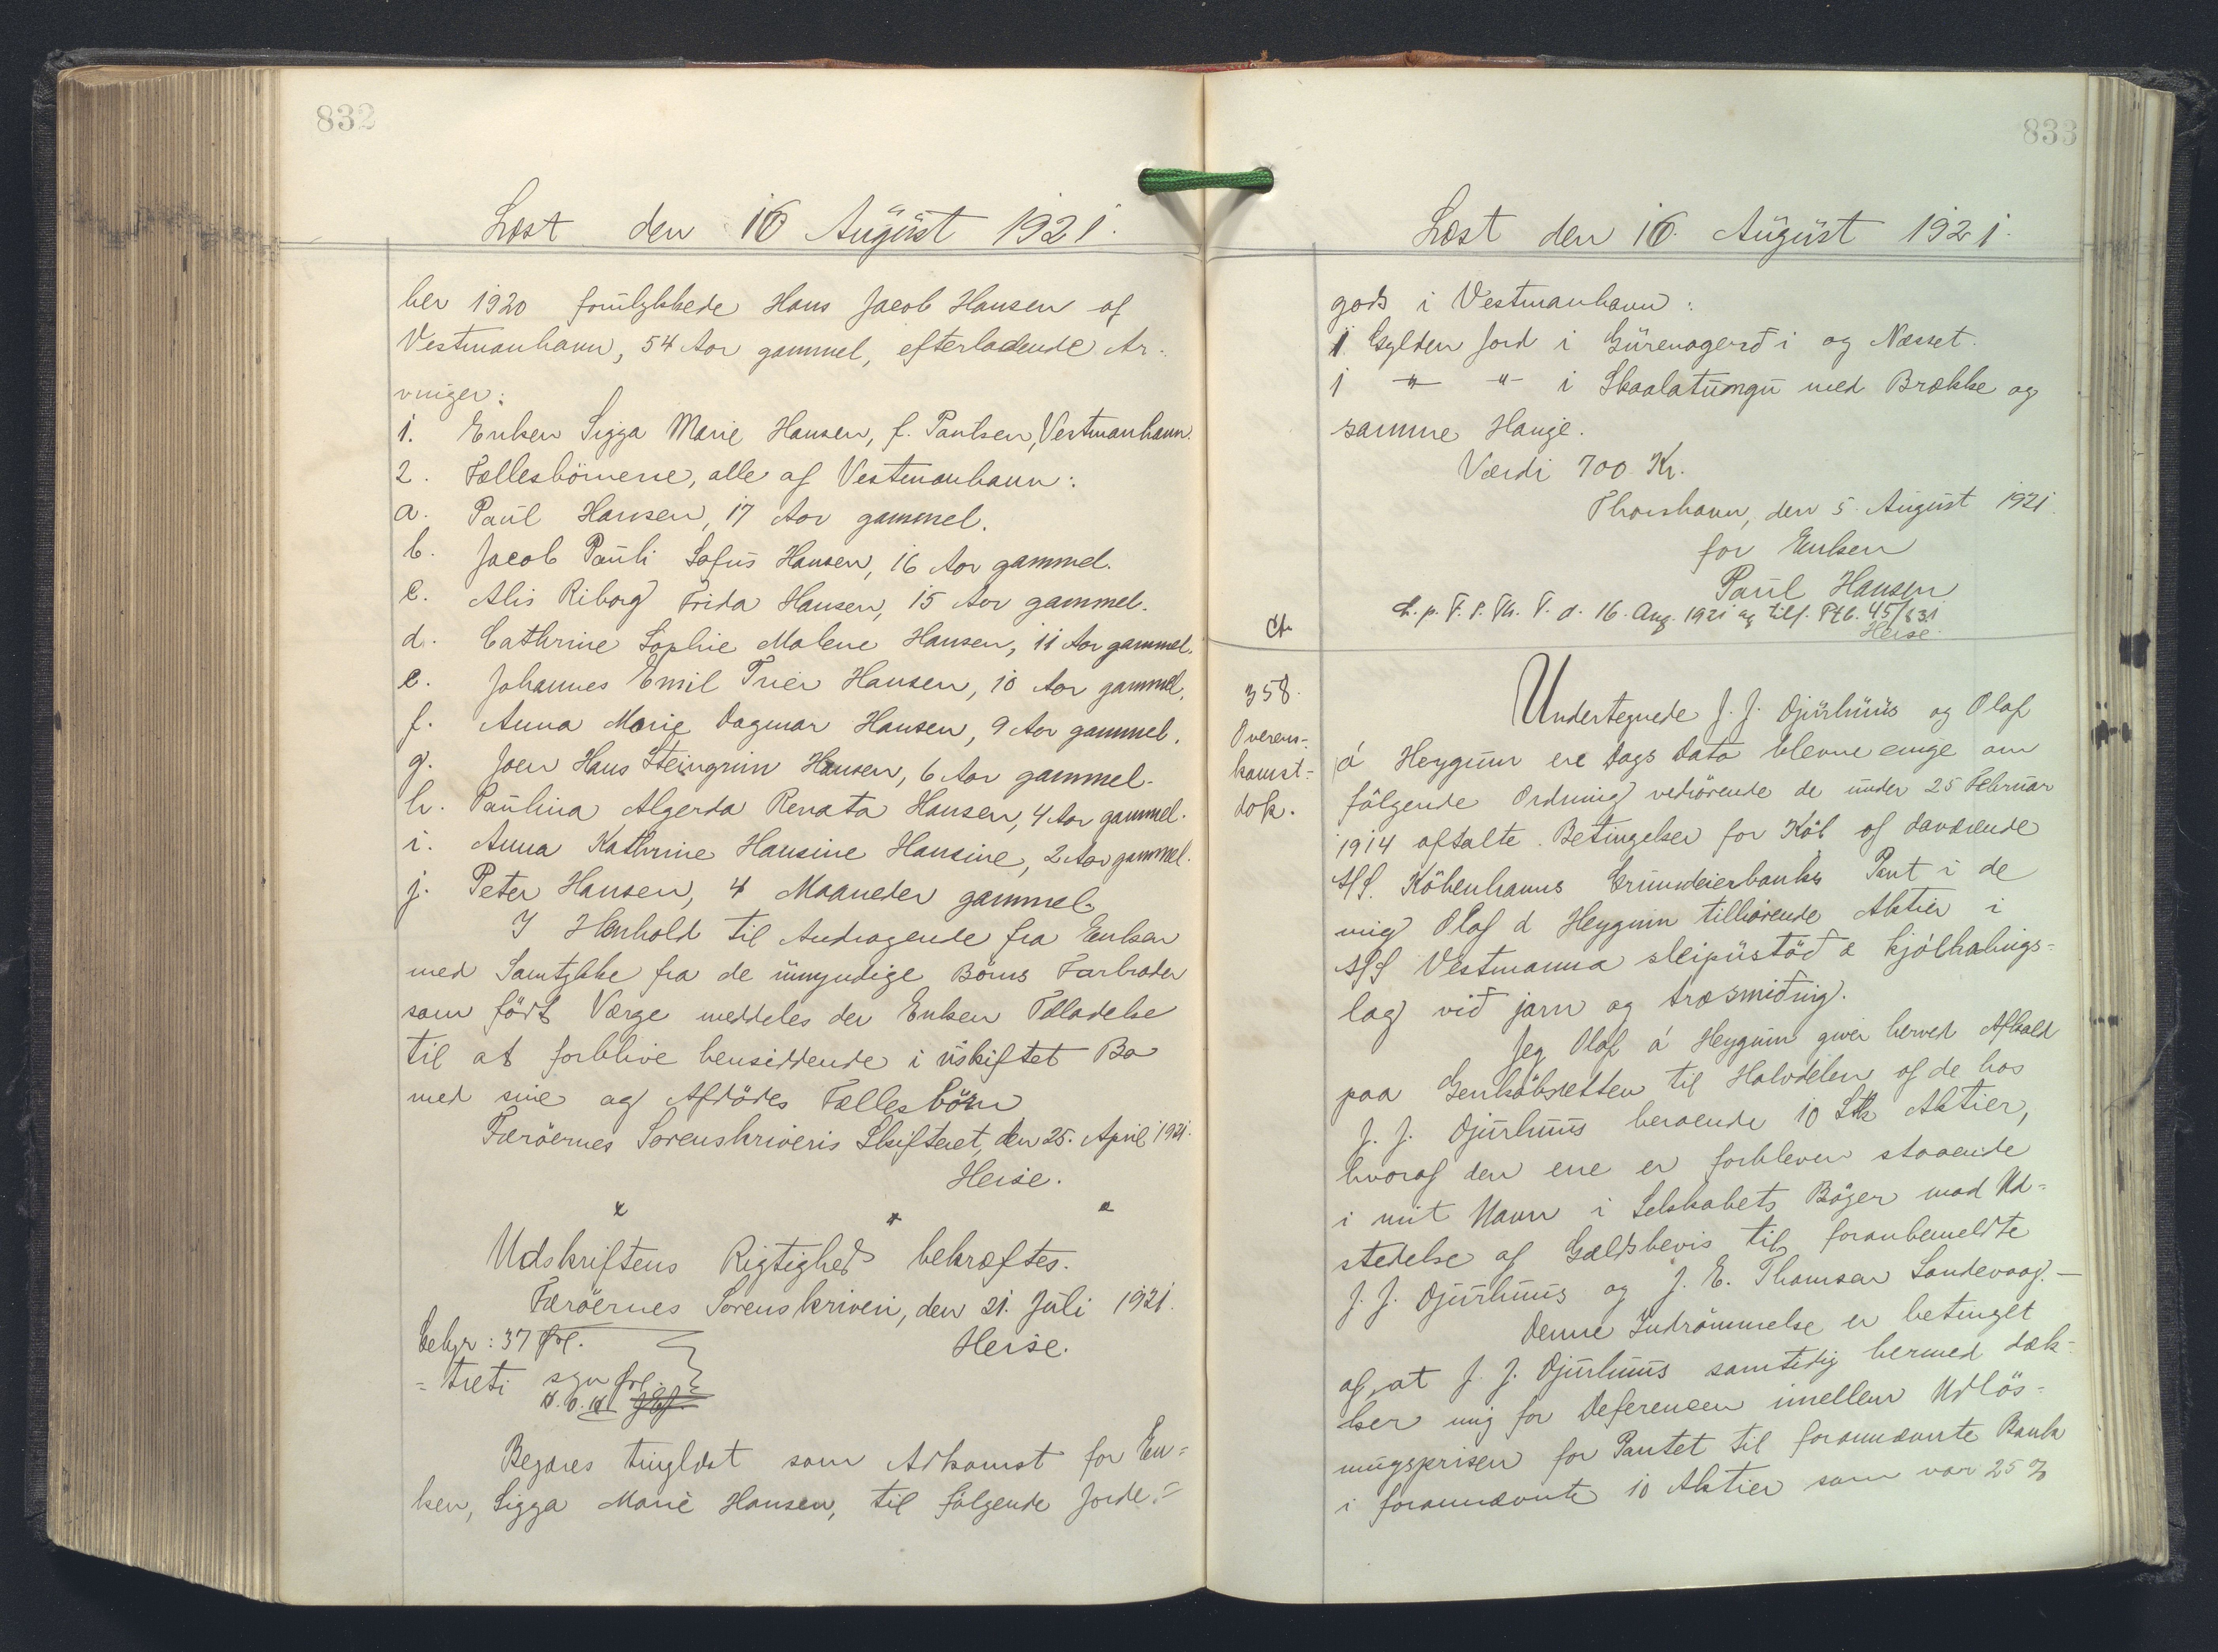 832
Læst den 16 August 1921.
ber 1920 forulykkede Hans Jacob Hansen af
Vestmanhavn, 54 Aar gammel, efterladende Ar-
vinger:
1. Enken Sigga Marie Hansen, f. Paulsen, Vestmanhavn.
2. Fællesbörnene, alle af Vestmanhavn:
a. Paul Hansen, 17 Aar gammel.
b. Jacob Pauli Sofus Hansen, 16 Aar gammel.
c. Alis Riborg Frida Hansen, 15 Aar gammel.
d. Cathrine Sophie Malene Hansen, 11 Aar gammel.
e. Johannes Emil Trier Hansen, 10 Aar gammel.
f. Anna Marie Dagmar Hansen, 9 Aar gammel.
g. Joen Hans Steingrim Hansen, 6 Aar gammel.
h. Paulina Algerda Renata Hansen, 4 Aar gammel.
i. Anna Kathrine Hansine Hansine, 2 Aar gammel.
j. Peter Hansen, 4 Maaneder gammel.
I Henhold til Andragende fra Enken
med Samtykke fra de umyndige Börns Farbroder
som födt Værge meddeles der Enken Tilladelse
til at forblive hensiddende i uskiftet Bo
med sine og Afdödes Fællesbörn
Færöernes Sorenskriveris Skifteret, den 25. April 1921.
Heise.
" " "
Udskriftens Rigtighed bekræftes.
Færöernes Sorenskriveri, den 21. Juli 1921.
Gebyr: 37 Heise.
= treti syv
Begæres tinglæst som Adkomst for En-
ken, Sigga Marie Hansen, til følgende Jorde-
833
Læst den 16. August 1921.
gods i Vestmanhavn:
1 Gylden Jord i Gurenagerdi og Næsset.
1 " " i Skaalatumgu med Brække og
samme Hauge.
Værdi 700 Kr.
Thorshavn, den 5. August 1921.
for Enken
Paul Hansen
L. p. F. S. Th. T. d. 16. Aug. 1921 og tilf. Ptb. 45/831
Heise.
358.
Overens-
komst-
dok.
Undertegnede J. J. Djurhuus og Olaf
á Heygum ere Dags Dato blevne enige om
fölgende Ordning vedrörende de under 25 Februar
1914 aftalte Betingelser for Köb af daværende
A/S. Köbenhavns Grundeierbanks Pant i de
mig Olaf á Heygum tilhørende Aktier i
A/S Vestmanna sleipustöð & kjölhalings-
lag við jarn og træsmiðing.
Jeg Olaf á Heygum giver herved Afkald
paa Genköbsretten til Halvdelen af de hos
J. J. Djurhuus beroende 10 Stk Aktier,
hvoraf den ene er forbleven staaende
i mit Navn i Selskabets Böger mod Ud-
stedelse af Gældsbevis til foranbemeldte
J. J. Djurhuus og J. E. Thomsen Sandevaag. —
Denne Indrömmelse er betinget
af, at J. J. Djurhuus samtidig hermed dæk-
ker mig for Deferencen imellem Udlös-
ningsprisen for Pantet til forannævnte Bank
i forannævnte 10 Aktier som var 25 %